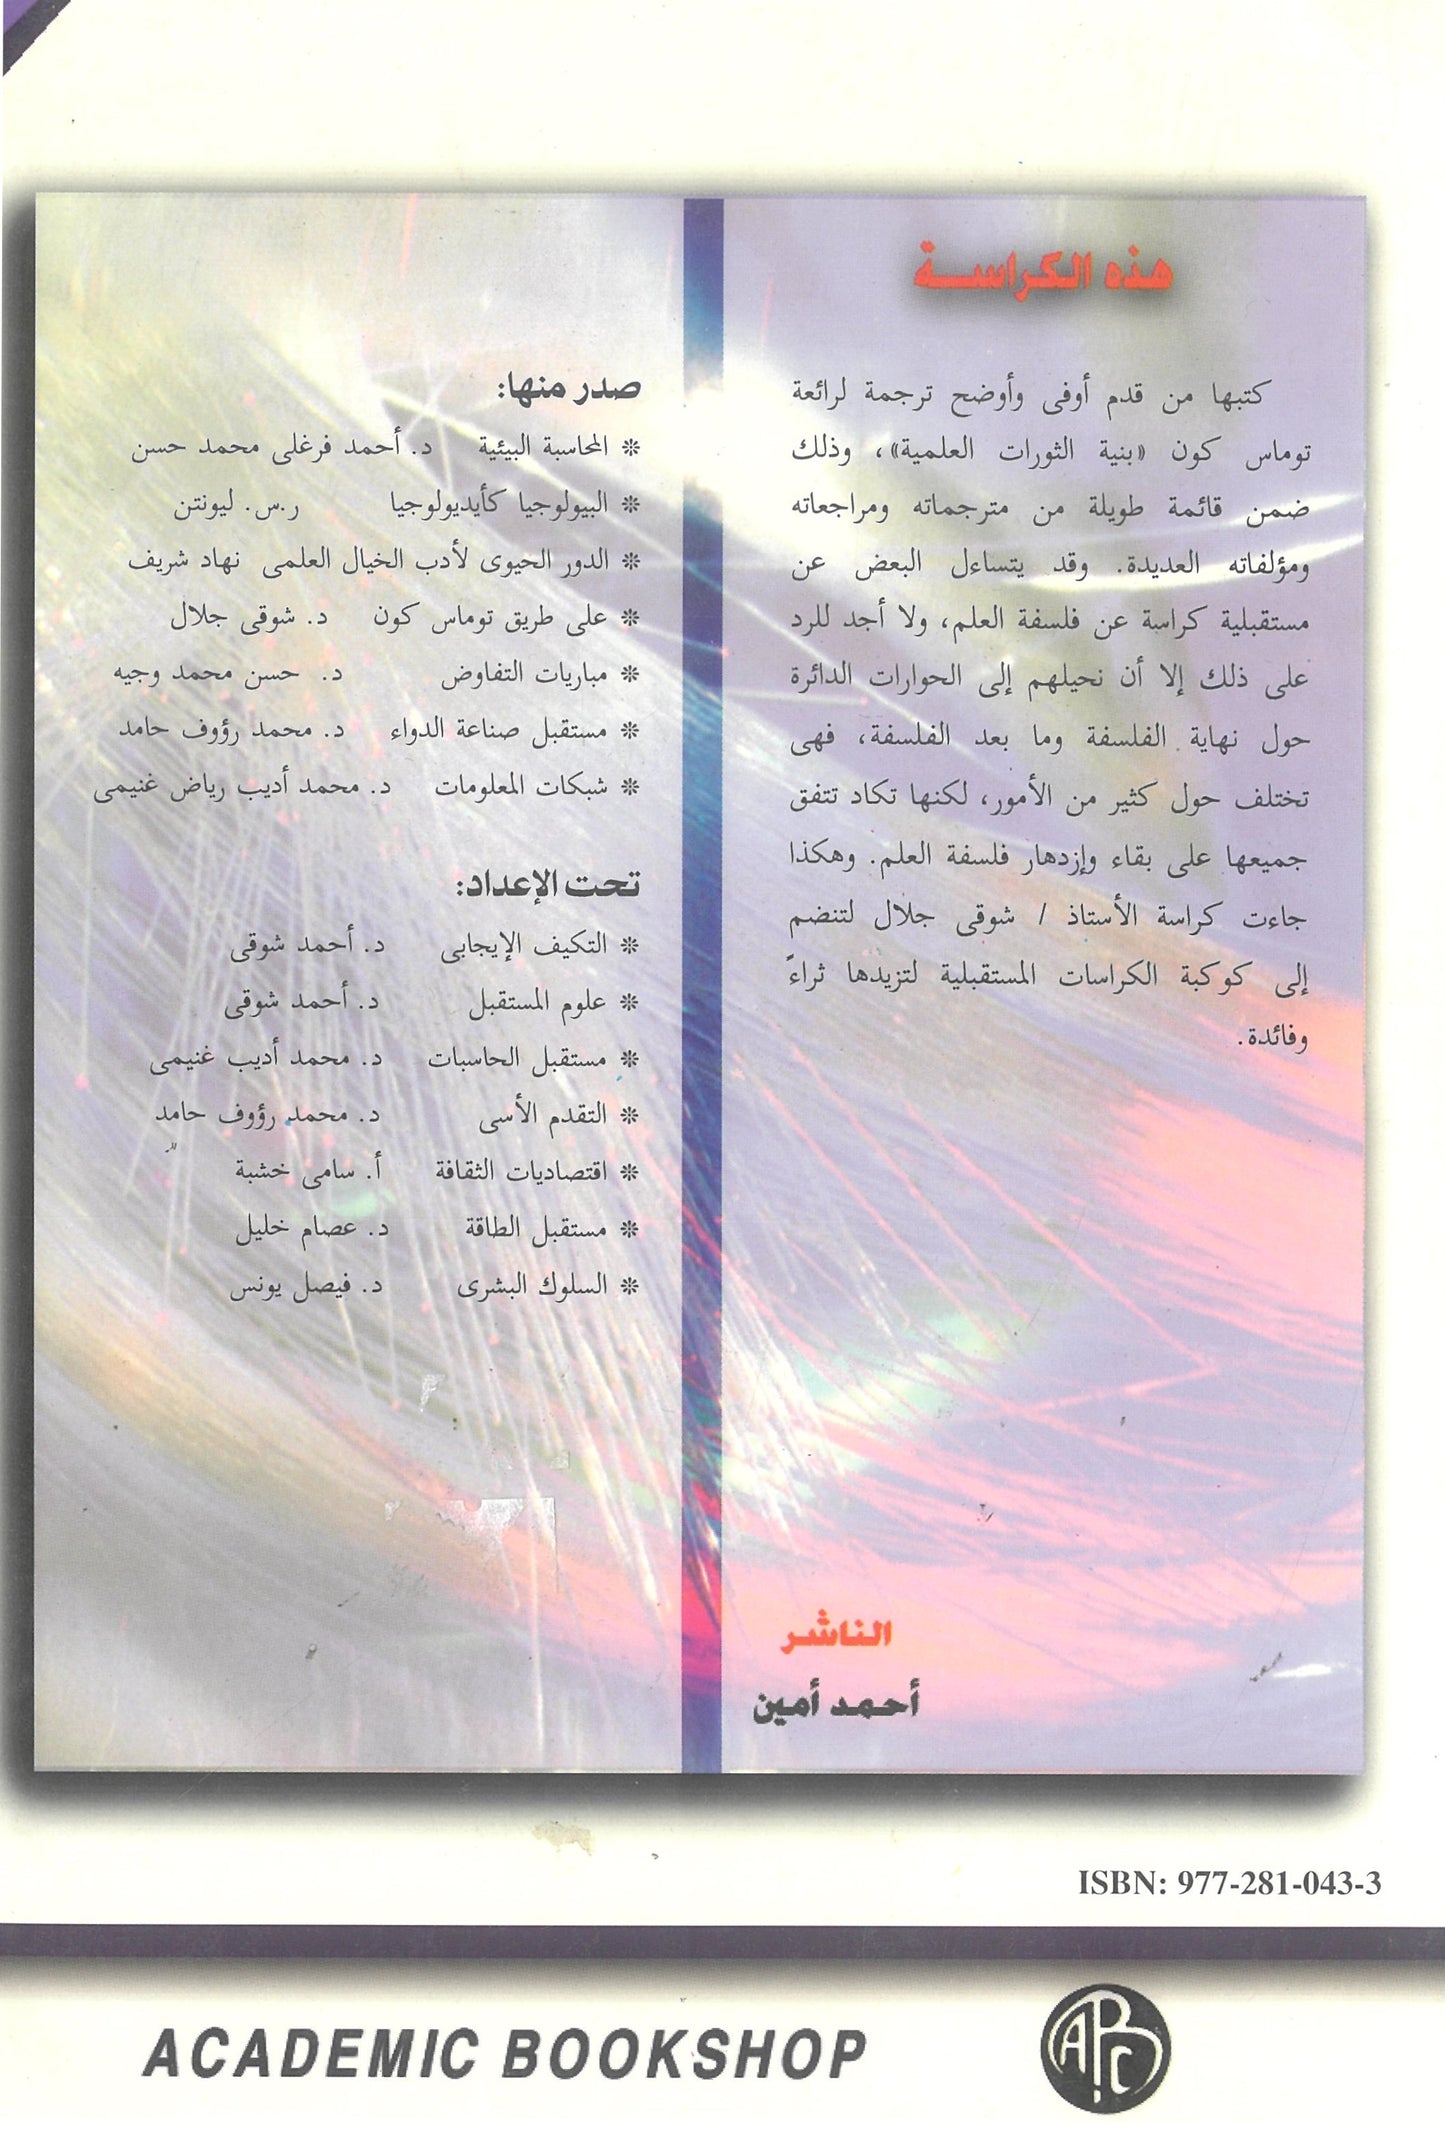 هذه الكراسة
كتبها من قدم أوفى وأوضح ترجمة لرائعة
توماس كون «بنية الثورات العلمية»، وذلك
ضمن قائمة طويلة من مترجماته ومراجعاته
ومؤلفاته العديدة. وقد يتساءل البعض عن
مستقبلية كراسة عن فلسفة العلم، ولا أجد للرد
على ذلك إلا أن نحيلهم إلى الحوارات الدائرة
حول نهاية الفلسفة وما بعد الفلسفة، فهى
تختلف حول كثير من الأمور، لكنها تكاد تتفق
جميعها على بقاء وإزدهار فلسفة العلم. وهكذا
جاءت كراسة الأستاذ / شوقى جلال لتنضم
إلى كوكبة الكراسات المستقبلية لتزيدها ثراءً
وفائدة.
الناشر
أحمد أمين
صدر منها:
❊ المحاسبة البيئية د. أحمد فرغلى محمد حسن
❊ البيولوجيا كأيديولوجيا ر.س. ليونتن
❊ الدور الحيوى لأدب الخيال العلمى نهاد شريف
❊ على طريق توماس كون د. شوقى جلال
❊ مباريات التفاوض د. حسن محمد وجيه
❊ مستقبل صناعة الدواء د. محمد رؤوف حامد
❊ شبكات المعلومات د. محمد أديب رياض غنيمى
تحت الإعداد:
❊ التكيف الإيجابى د. أحمد شوقى
❊ علوم المستقبل د. أحمد شوقى
❊ مستقبل الحاسبات د. محمد أديب غنيمى
❊ التقدم الأسى د. محمد رؤوف حامد
❊ اقتصاديات الثقافة أ. سامى خشبة
❊ مستقبل الطاقة د. عصام خليل
❊ السلوك البشرى د. فيصل يونس
ISBN: 977-281-043-3
ACADEMIC BOOKSHOP
ABC